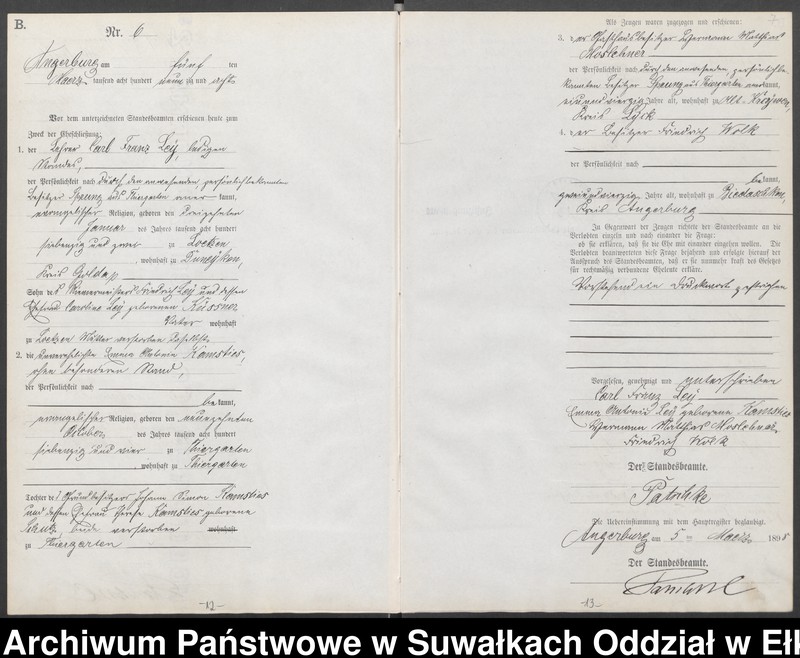 B.
Nr. 6
Angerburg am fünf ten
Maerz tausend acht hundert neun zig und acht
Vor dem unterzeichneten Standesbeamten erschienen heute zum
Zweck der Eheschließung:
1. der Lehrer Carl Franz Ley, ledigen
Standes,
der Persönlichkeit nach durch den anwesenden, persönlich bekannten
Besitzer aus Thiergarten aner kannt,
evangelischer Religion, geboren den dreizehnten
Januar des Jahres tausend acht hundert
siebenzig und zwei zu Loetzen
, wohnhaft zu Duneyken,
Kreis Goldap
Sohn des Friedrich Ley und dessen
Ehefrau Caroline Ley geborenen
Vater wohnhaft
zu Loetzen Mutter verstorben daselbst.
2. die unverehelichte Emma Antonie Kamsties,
ohne besonderen Stand,
der Persönlichkeit nach
be kannt,
evangelischer Religion, geboren den neunzehnten
October des Jahres tausend acht hundert
siebenzig und vier zu Thiergarten
, wohnhaft zu Thiergarten
Tochter des Grundbesitzers Johann Simon Kamsties
und dessen Ehefrau Kamsties geborene
Schulz beide verstorben wohnhaft
zu Thiergarten
-12-
7
Als Zeugen waren zugezogen und erschienen:
3. der Gasthausbesitzer Hermann Matthias
Moslehner
der Persönlichkeit nach durch den anwesenden, persönlich be-
kannten Besitzer aus Thiergarten anerkannt,
einundvierzig Jahre alt, wohnhaft zu Alt-Krzywen,
Kreis Lyck
4. der Besitzer Friedrich Wolk
der Persönlichkeit nach
be kannt,
zweiundvierzig Jahre alt, wohnhaft zu
Kreis Angerburg
In Gegenwart der Zeugen richtete der Standesbeamte an die
Verlobten einzeln und nach einander die Frage:
ob sie erklären, daß sie die Ehe mit einander eingehen wollen. Die
Verlobten beantworteten diese Frage bejahend und erfolgte hierauf der
Ausspruch des Standesbeamten, daß er sie nunmehr kraft des Gesetzes
für rechtmäßig verbundene Eheleute erkläre.
Vorstehend ein Druckwort gestrichen
Vorgelesen, genehmigt und unterschrieben
Carl Franz Ley
Emma Antonie Ley geborene Kamsties
Hermann Matthias Moslehner
Friedrich Wolk
Der Standesbeamte.
Patschke
Die Uebereinstimmung mit dem Hauptregister beglaubigt.
Angerburg am 5 ten Maerz 1898
Der Standesbeamte.
-13-
Archiwum Państwowe w Suwałkach Oddział w Ełk